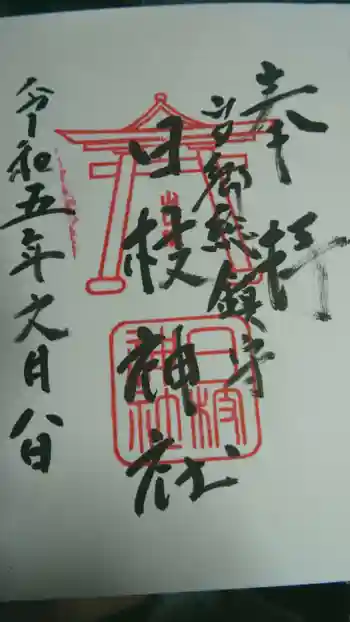 奉拝
当郷総鎮守
日枝神社
令和五年六月八日
日枝
神社